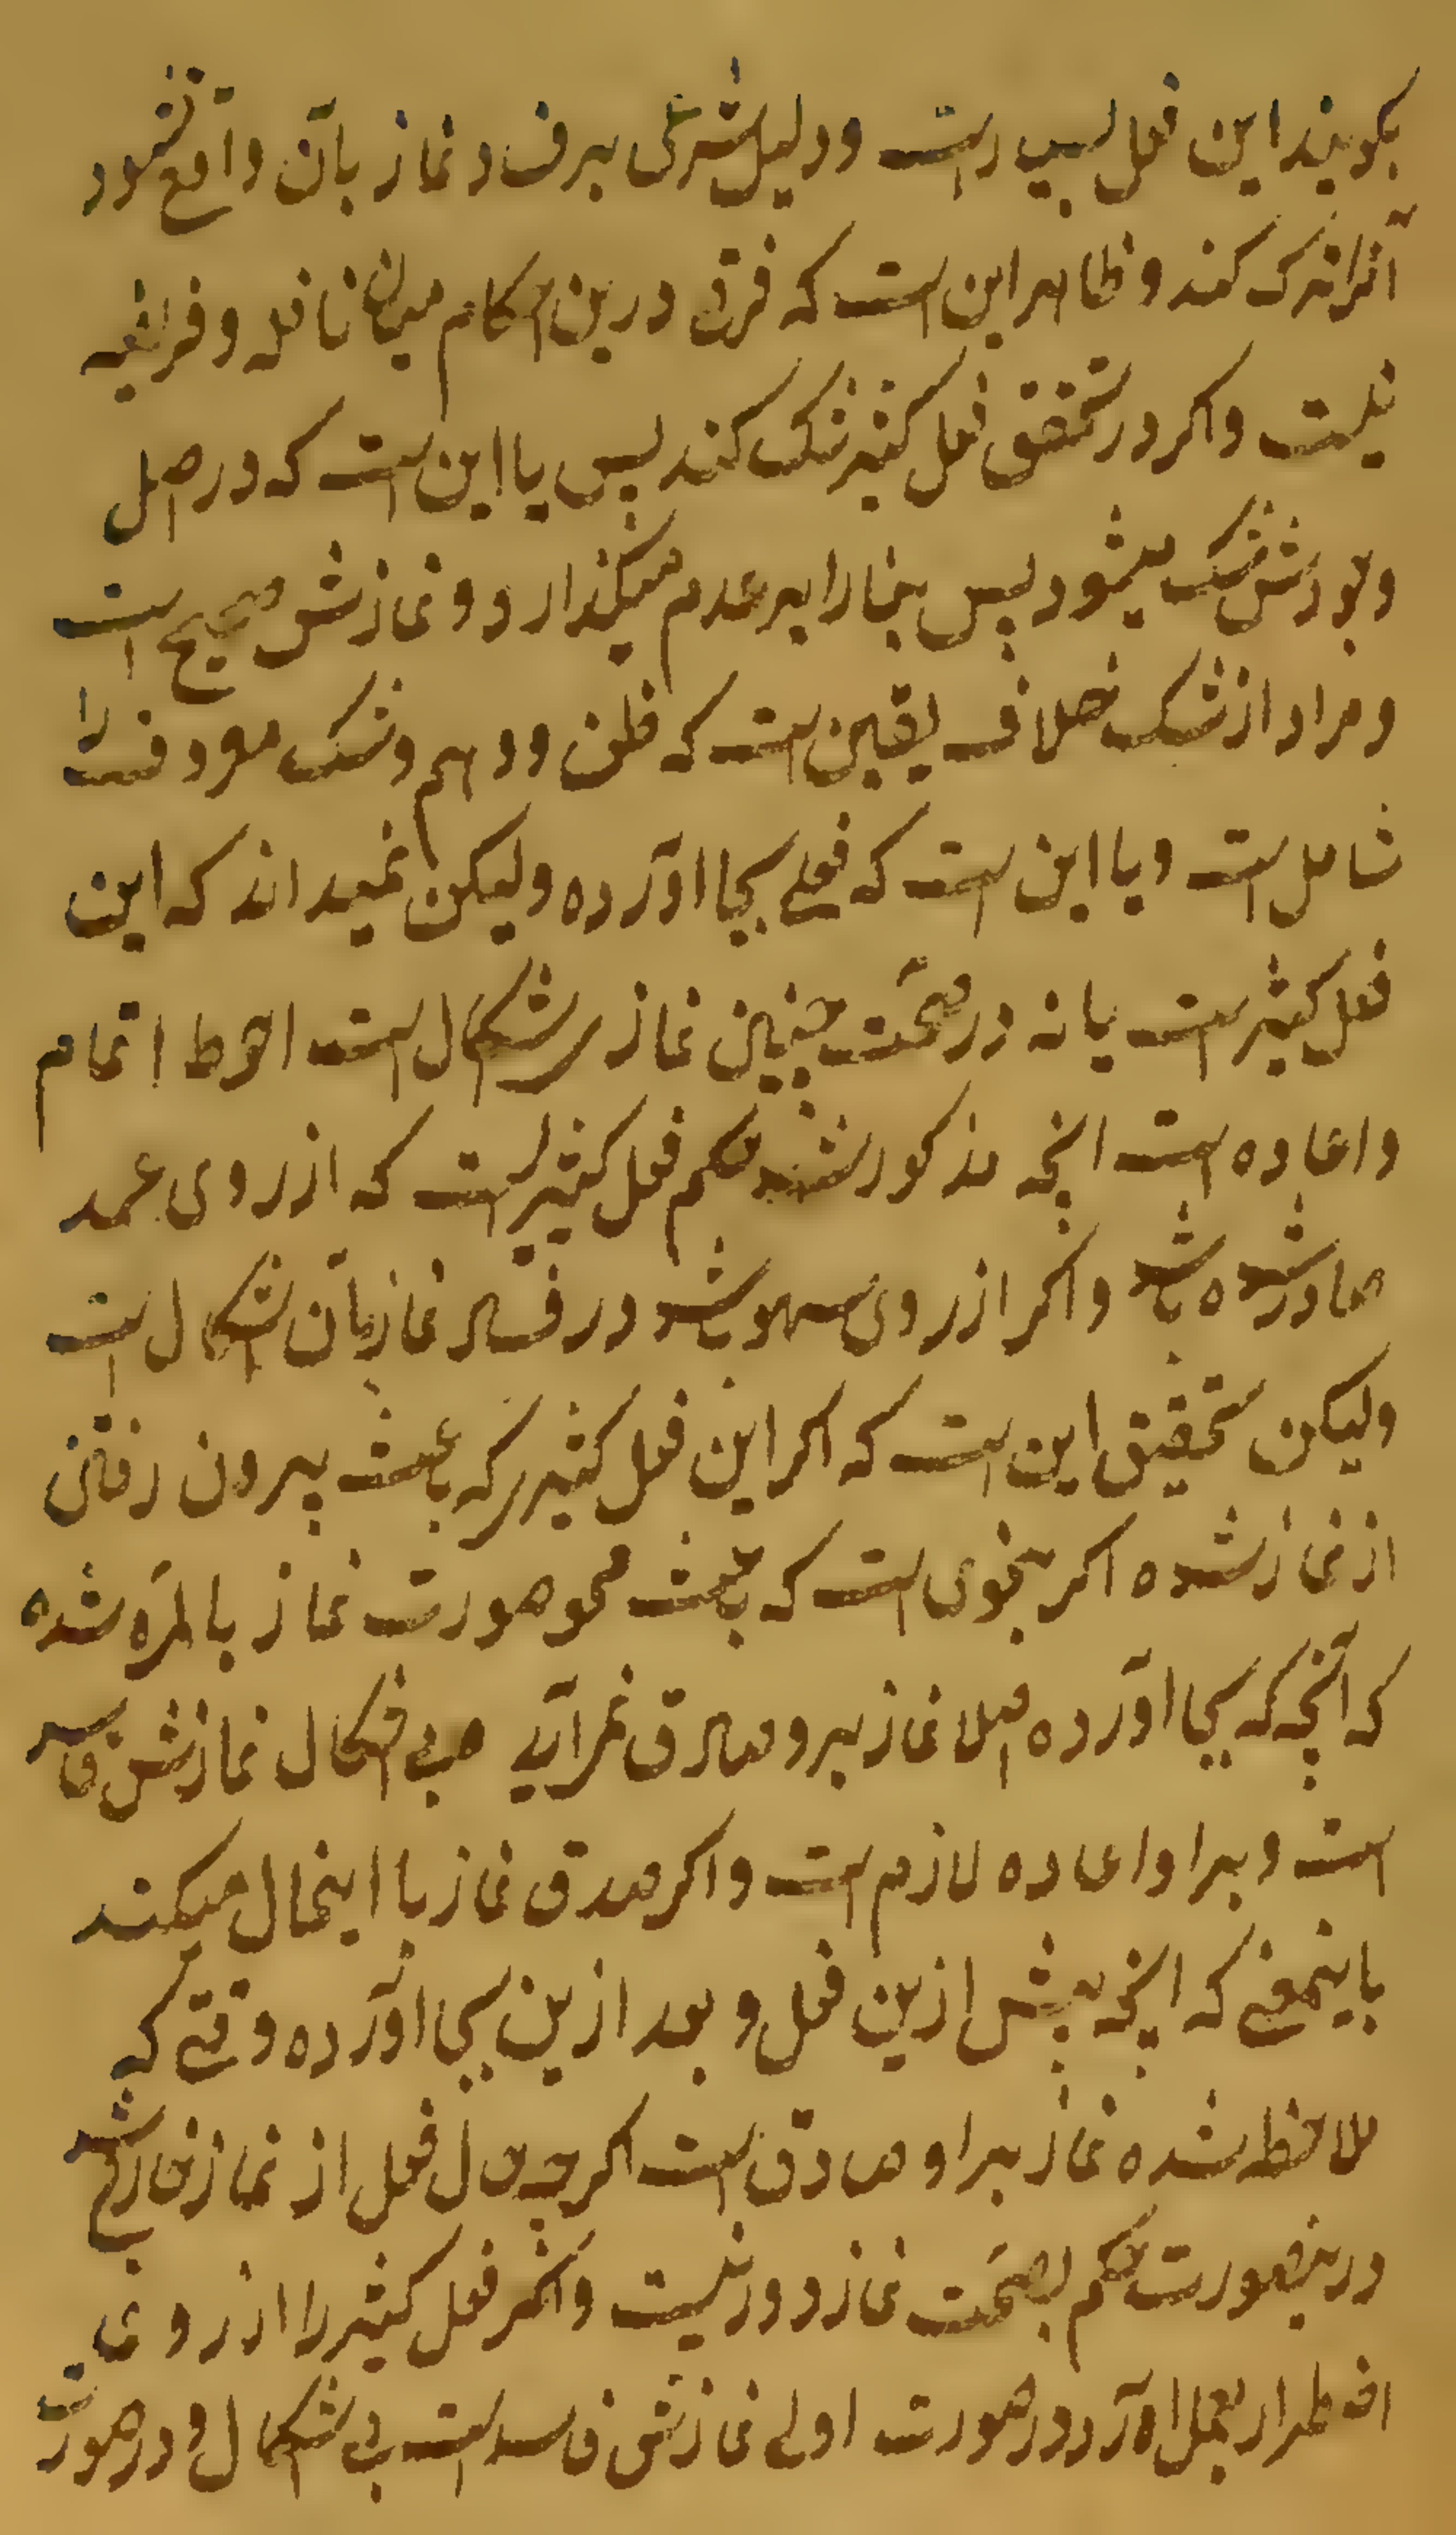 بکویند این فعل بسیار است و دلیل شرعی بر فساد نماز بآن واقع نشود
آنرا ترک کند و ظاهر این است که فرق درین احکام میان نافله و فریضه
نیست و اکر در تحقق فعل کثیر شک کند پس یا این است که در اصل
وجودش شک میشود پس بنا را بر عدم میکذارد و نمازش صحیح است
و مراد از شک خلاف یقین است که ظن و وهم و شک معروف را
شامل است و یا این است که فعلی بجا اورده ولیکن نمیداند که این
فعل کثیر است یا نه در صحّت چنین نماز اشکال است احوط اتمام
و اعاده است انچه مذکور شد حکم فعل کثیر است که از روی عمد
صادر شده باشد و اکر از روی سهو باشد در فساد نماز بآن اشکال است
ولیکن تحقیق این است که اکر این فعل کثیر که باعث بیرون رفتن
از نماز شده اکر بنحوی است که باعث محو صورت نماز بالمرّه شده
که آنچه که بجا اورده اصلا نماز برو صادق نمیآید بی اشکال نمازش فاسد
است و بر او اعاده لازم است و اکر صدق نماز با اینحال میکند
باینمعنی که انچه پیش ازین فعل و بعد ازین بجا اورده وقتی که
ملاحظه شده نماز بر او صادق است اکرچه حال فعل از نماز خارج باشد
درینصورت حکم بصحّت نماز دور نیست و اکر فعل کثیر را از روی
اضطرار بعمل اورد در صورت اولی نمازش فاسد است بی اشکال و در صورت